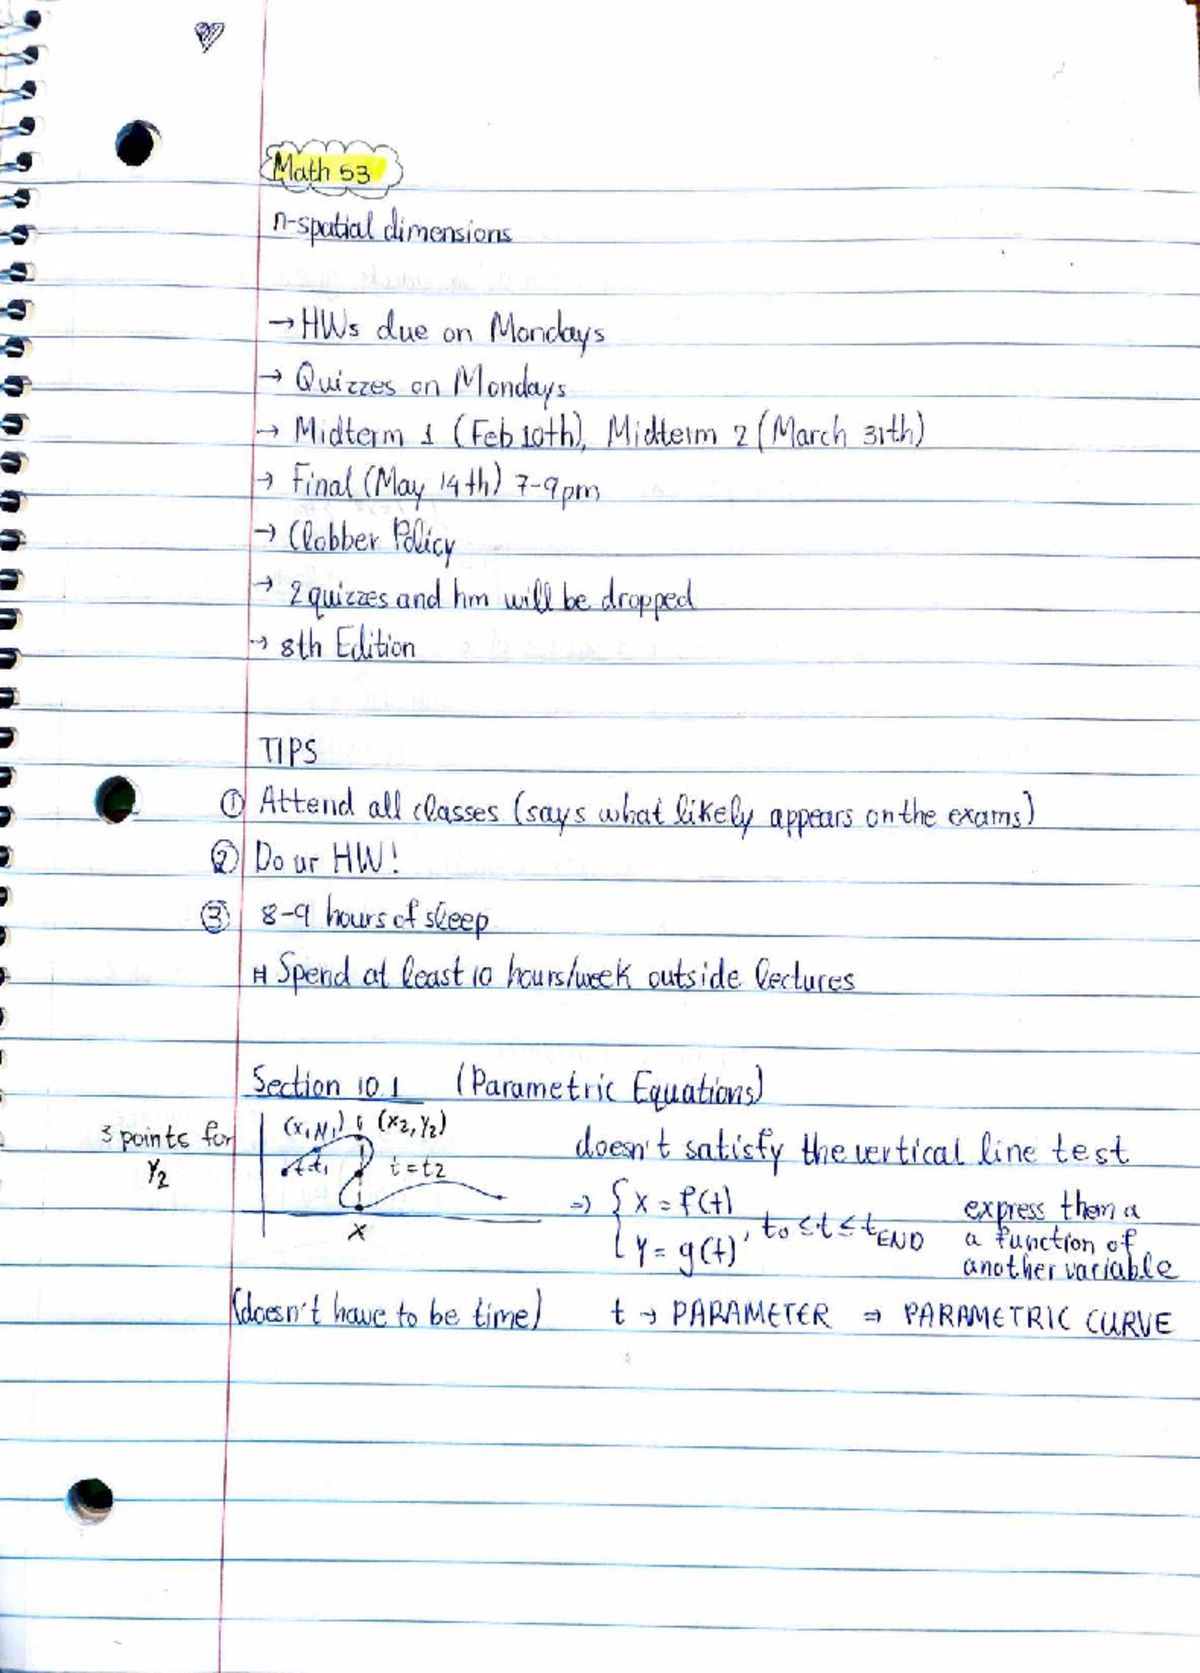 Math 53
n-spatial dimensions
→ HWs due on Mondays
→ Quizzes on Mondays
→ Midterm 1 (Feb 10th), Midterm 2 (March 31th)
→ Final (May 14th) 7-9pm
→ Clobber Policy
→ 2 quizzes and hm will be dropped
→ 8th Edition
TIPS
① Attend all classes (says what likely appears on the exams)
② Do ur HW!
③ 8-9 hours of sleep
# Spend at least 10 hours/week outside lectures
Section 10.1 (Parametric Equations)
3 points for
Y2
(x1,y1) (x2,y2)
t=t1 t=t2
x
doesn't satisfy the vertical line test
⇒ { x = f(t)
y = g(t) , t0 ≤ t ≤ tEND
express them a
a function of
another variable
(doesn't have to be time) t → PARAMETER ⇒ PARAMETRIC CURVE